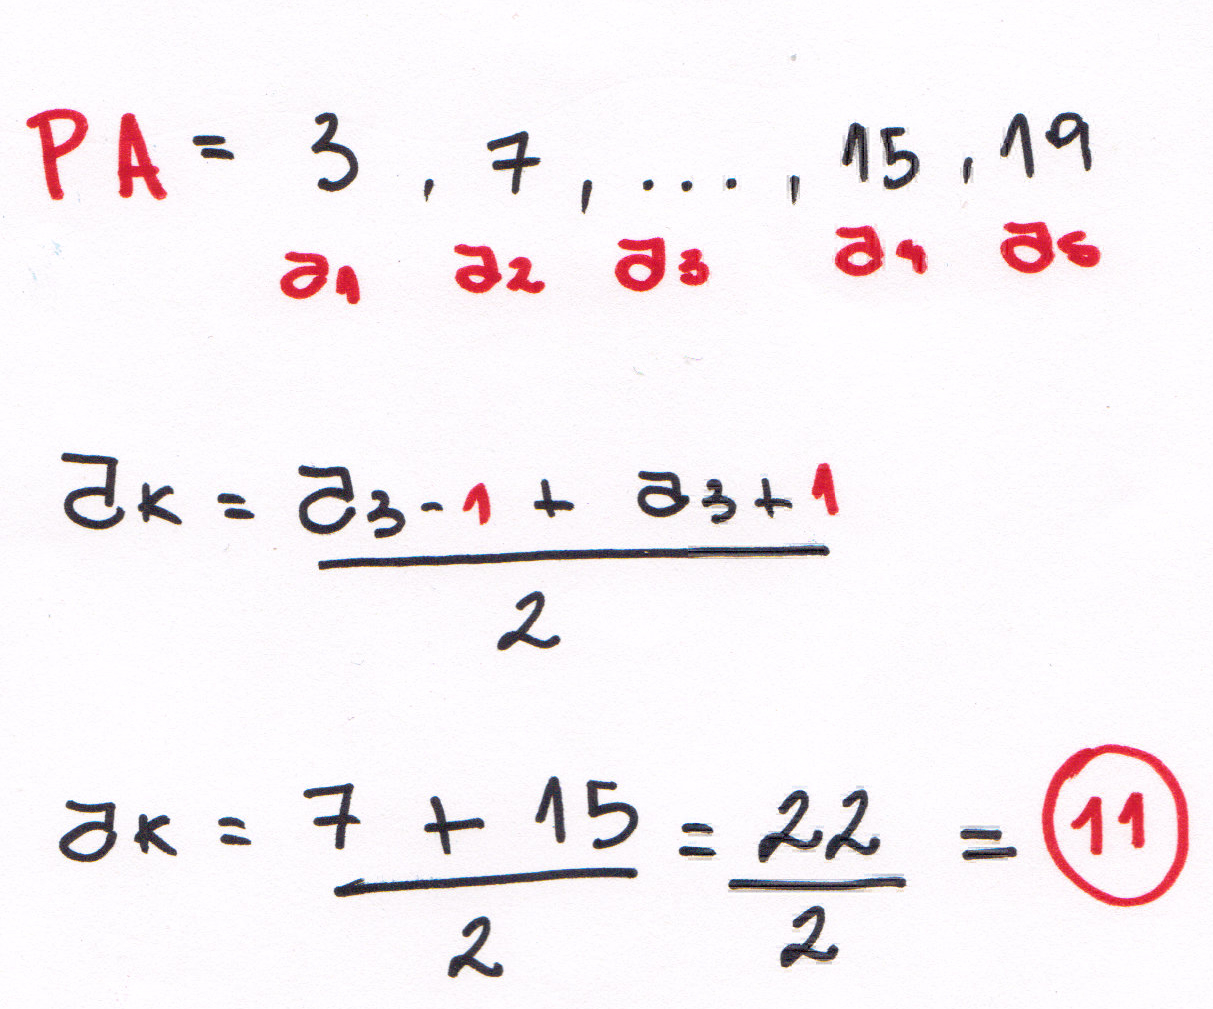 PA = 3 , 7 , ... , 15 , 19
a1 a2 a3 a4 a5
aK = a3-1 + a3+1
2
aK = 7 + 15 = 22 = 11
2 2